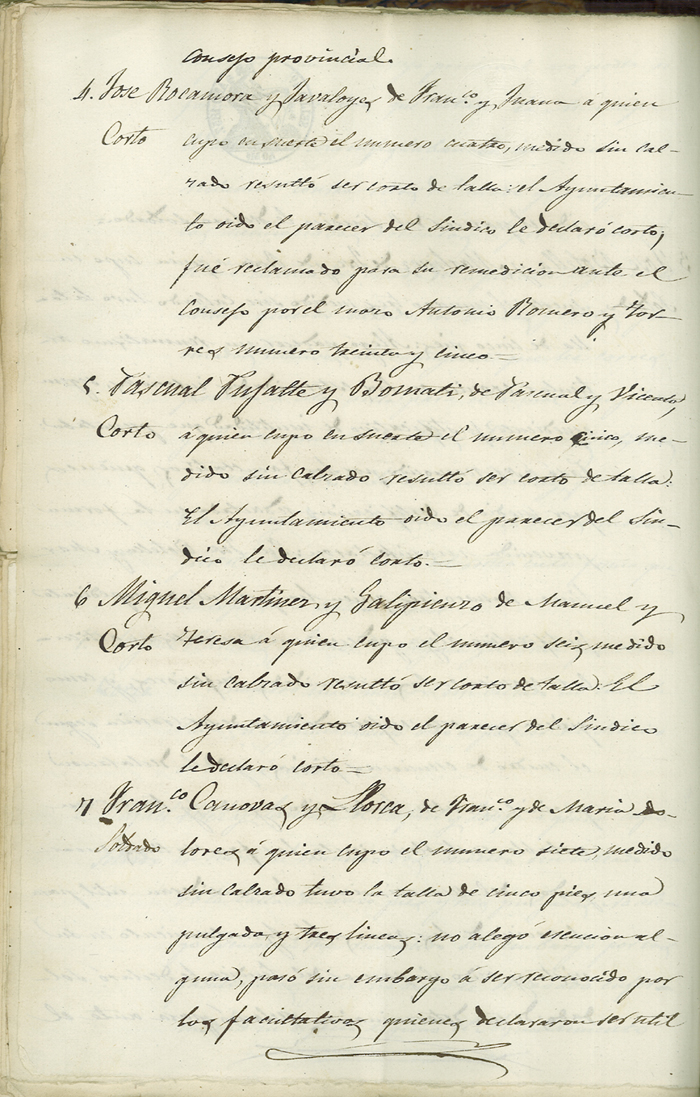 Consejo provincial.
4. Jose Rocamora y Javaloyes de Fran.co y Juana á quien
Corto cupo en suerte el numero cuatro, medido sin cal-
zado resultó ser corto de talla: el Ayuntamien-
to oido el parecer del Sindico le declaró corto,
fué reclamado para su remedicion ante el
Consejo por el mozo Antonio Romero y Tor-
res numero treinta y cinco—
5. Pascual Pujalte y Bonati, de Pascual y Vicenta,
Corto á quien cupo en suerte el numero cinco, me-
dido sin calzado resultó ser corto de talla:
El Ayuntamiento oido el parecer del Sin-
dico le declaró corto.—
6 Miguel Martinez y Galipienzo de Manuel y
Corto Teresa á quien cupo el numero seis, medido
sin calzado resultó ser corto de talla. El
Ayuntamiento oido el parecer del Sindico
le declaró corto—
7 Fran.co Canovas y Llorca, de Fran.co y de Maria do-
Soldado lores, á quien cupo el numero siete, medido
sin calzado tuvo la talla de cinco pies, una
pulgada, y tres lineas: no alegó esencion al-
guna, pasó sin embargo á ser reconocido por
los facultativos quienes declararon ser util